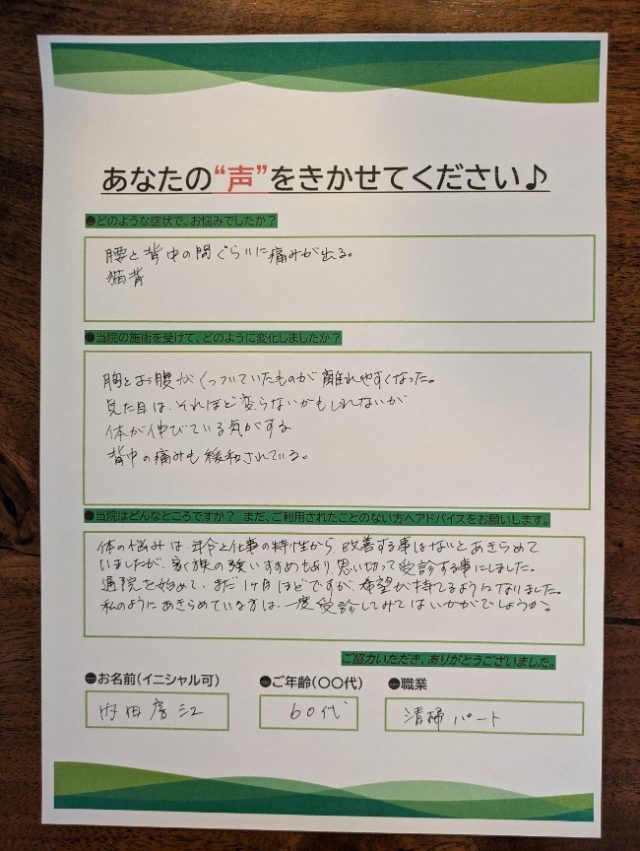 あなたの“声”をきかせてください♪
●どのような症状で、お悩みでしたか?
腰と背中の間ぐらいに痛みが出る。
猫背
●当院の施術を受けて、どのように変化しましたか?
胸とお腹がくっついていたものが離れやすくなった。
見た目は、それほど変らないかもしれないが
体が伸びている気がする
背中の痛みも緩和されている。
●当院はどんなところですか? まだ、ご利用されたことのない方へアドバイスをお願いします。
体の悩みは、年令と仕事の特性から、改善する事はないとあきらめて
いましたが、家族の強いすすめもあり、思い切って受診する事にしました。
通院を始めて、まだ1ヶ月ほどですが、希望が持てるようになりました。
私のようにあきらめている方は、一度受診してみてはいかがでしょうか。
ご協力いただき、ありがとうございました。
●お名前(イニシャル可) ●ご年齢(〇〇代) ●職業
内田房江 60代 清掃パート